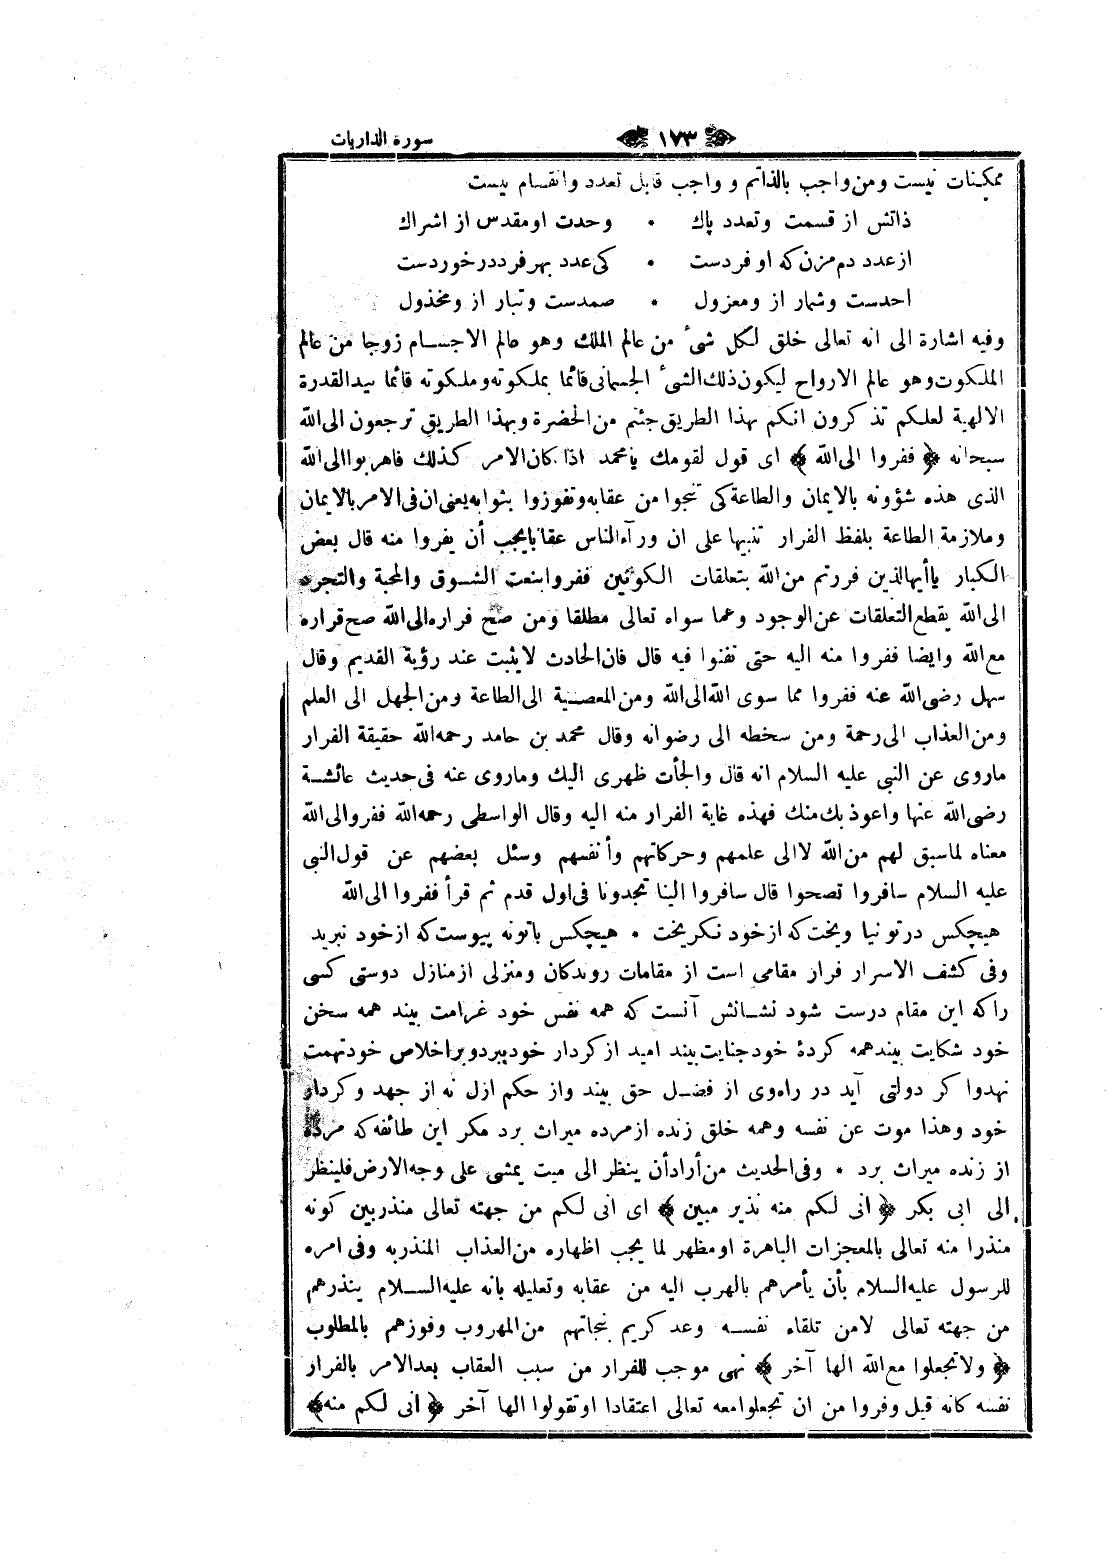 سورة الذاريات ١٧٣
ممكنات نيست ومن واجب بالذاتم و واجب قابل تعدد وانقسام نيست
ذاتش از قسمت وتعدد پاك • وحدت او مقدس از اشراك
از عدد دم مزن كه او فردست • كى عدد بهر فرد در خوردست
احدست وشمار از و معزول • صمدست وتبار از و مخذول
وفيه اشارة الى انه تعالى خلق لكل شىٔ من عالم الملك وهو عالم الاجسام زوجا من عالم
الملكوت وهو عالم الارواح ليكون ذلك الشىٔ الجسمانى قائما بملكوته وملكوته قائما بيد القدرة
الالهية لعلكم تذكرون انكم بهذا الطريق جئتم من الحضرة وبهذا الطريق ترجعون الى الله
سبحانه ﴿ ففروا الى الله ﴾ اى قول لقومك يا محمد اذا كان الامر كذلك فاهربوا الى الله
الذى هذه شؤونه بالايمان والطاعة كى تنجوا من عقابه وتفوزوا بثوابه يعنى ان فى الامر بالايمان
وملازمة الطاعة بلفظ الفرار تنبيها على ان ورآء الناس عقابا يجب أن يفروا منه قال بعض
الكبار يا أيها الذين فررتم من الله بتعلقات الكونين ففروا بنعت الشوق والمحبة والتجرد
الى الله بقطع التعلقات عن الوجود وعما سواه تعالى مطلقا ومن صح فراره الى الله صح قراره
مع الله وايضا ففروا منه اليه حتى تفنوا فيه قال فان الحادث لا يثبت عند رؤية القديم وقال
سهل رضى الله عنه ففروا مما سوى الله الى الله ومن المعصية الى الطاعة ومن الجهل الى العلم
ومن العذاب الى رحمة ومن سخطه الى رضوانه وقال محمد بن حامد رحمه الله حقيقة الفرار
ماروى عن النبى عليه السلام انه قال والجأت ظهرى اليك وماروى عنه فى حديث عائشة
رضى الله عنها واعوذ بك منك فهذه غاية الفرار منه اليه وقال الواسطى رحمه الله ففروا الى الله
معناه لما سبق لهم من الله لا الى علمهم وحركاتهم وأنفسهم وسئل بعضهم عن قول النبى
عليه السلام سافروا تصحوا قال سافروا الينا تجدونا فى اول قدم ثم قرأ ففروا الى الله
هيچكس در تو نيا ويخت كه از خود نكريخت • هيچكس با تو نه پيوست كه از خود نبريد
وفى كشف الاسرار فرار مقامى است از مقامات روندكان ومنزلى از منازل دوستى كسى
را كه اين مقام درست شود نشانش آنست كه همه نفس خود غرامت بيند همه سخن
خود شكايت بيند همه كردهٔ خود جنايت بيند اميد از كردار خود ببرد وبر اخلاص خود تهمت
نهد وا كر دولتى آيد در راه وى از فضل حق بيند واز حكم ازل نه از جهد وكردار
خود وهذا موت عن نفسه وهمه خلق زنده از مرده ميراث برد مكر اين طائفه كه مرده
از زنده ميراث برد • وفى الحديث من أراد أن ينظر الى ميت يمشى على وجه الارض فلينظر
الى ابى بكر ﴿ انى لكم منه نذير مبين ﴾ اى انى لكم من جهته تعالى منذر بين كونه
منذرا منه تعالى بالمعجزات الباهرة او مظهر لما يجب اظهاره من العذاب المنذر به وفى امره
للرسول عليه السلام بأن يأمرهم بالهرب اليه من عقابه وتعليله بانه عليه السلام ينذرهم
من جهته تعالى لا من تلقاء نفسه وعد كريم بنجاتهم من المهروب وفوزهم بالمطلوب
﴿ ولا تجعلوا مع الله الها آخر ﴾ نهى موجب للفرار من سبب العقاب بعد الامر بالفرار
نفسه كانه قيل وفروا من ان تجعلوا معه تعالى اعتقادا او تقولوا الها آخر ﴿ انى لكم منه ﴾